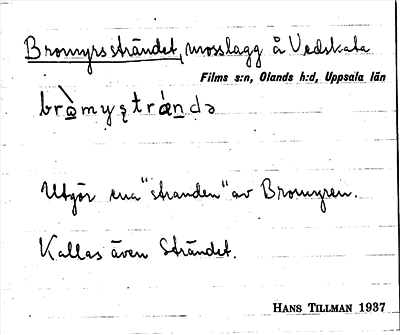 Bromyrssträndet, mosslagg å Vedskala
Films s:n, Olands h:d, Uppsala län
Utgör ena "stranden" av Bromyren.
Kallas även Strändet.
HANS TILLMAN 1937